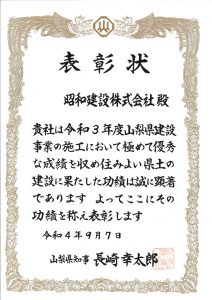 表彰状
昭和建設株式会社 殿
貴社は令和3年度山梨県建設
事業の施工において極めて優秀
な成績を収め住みよい県土の
建設に果たした功績は誠に顕著
であります よってここにその
功績を称え表彰します
令和4年9月7日
山梨県知事 長崎幸太郎